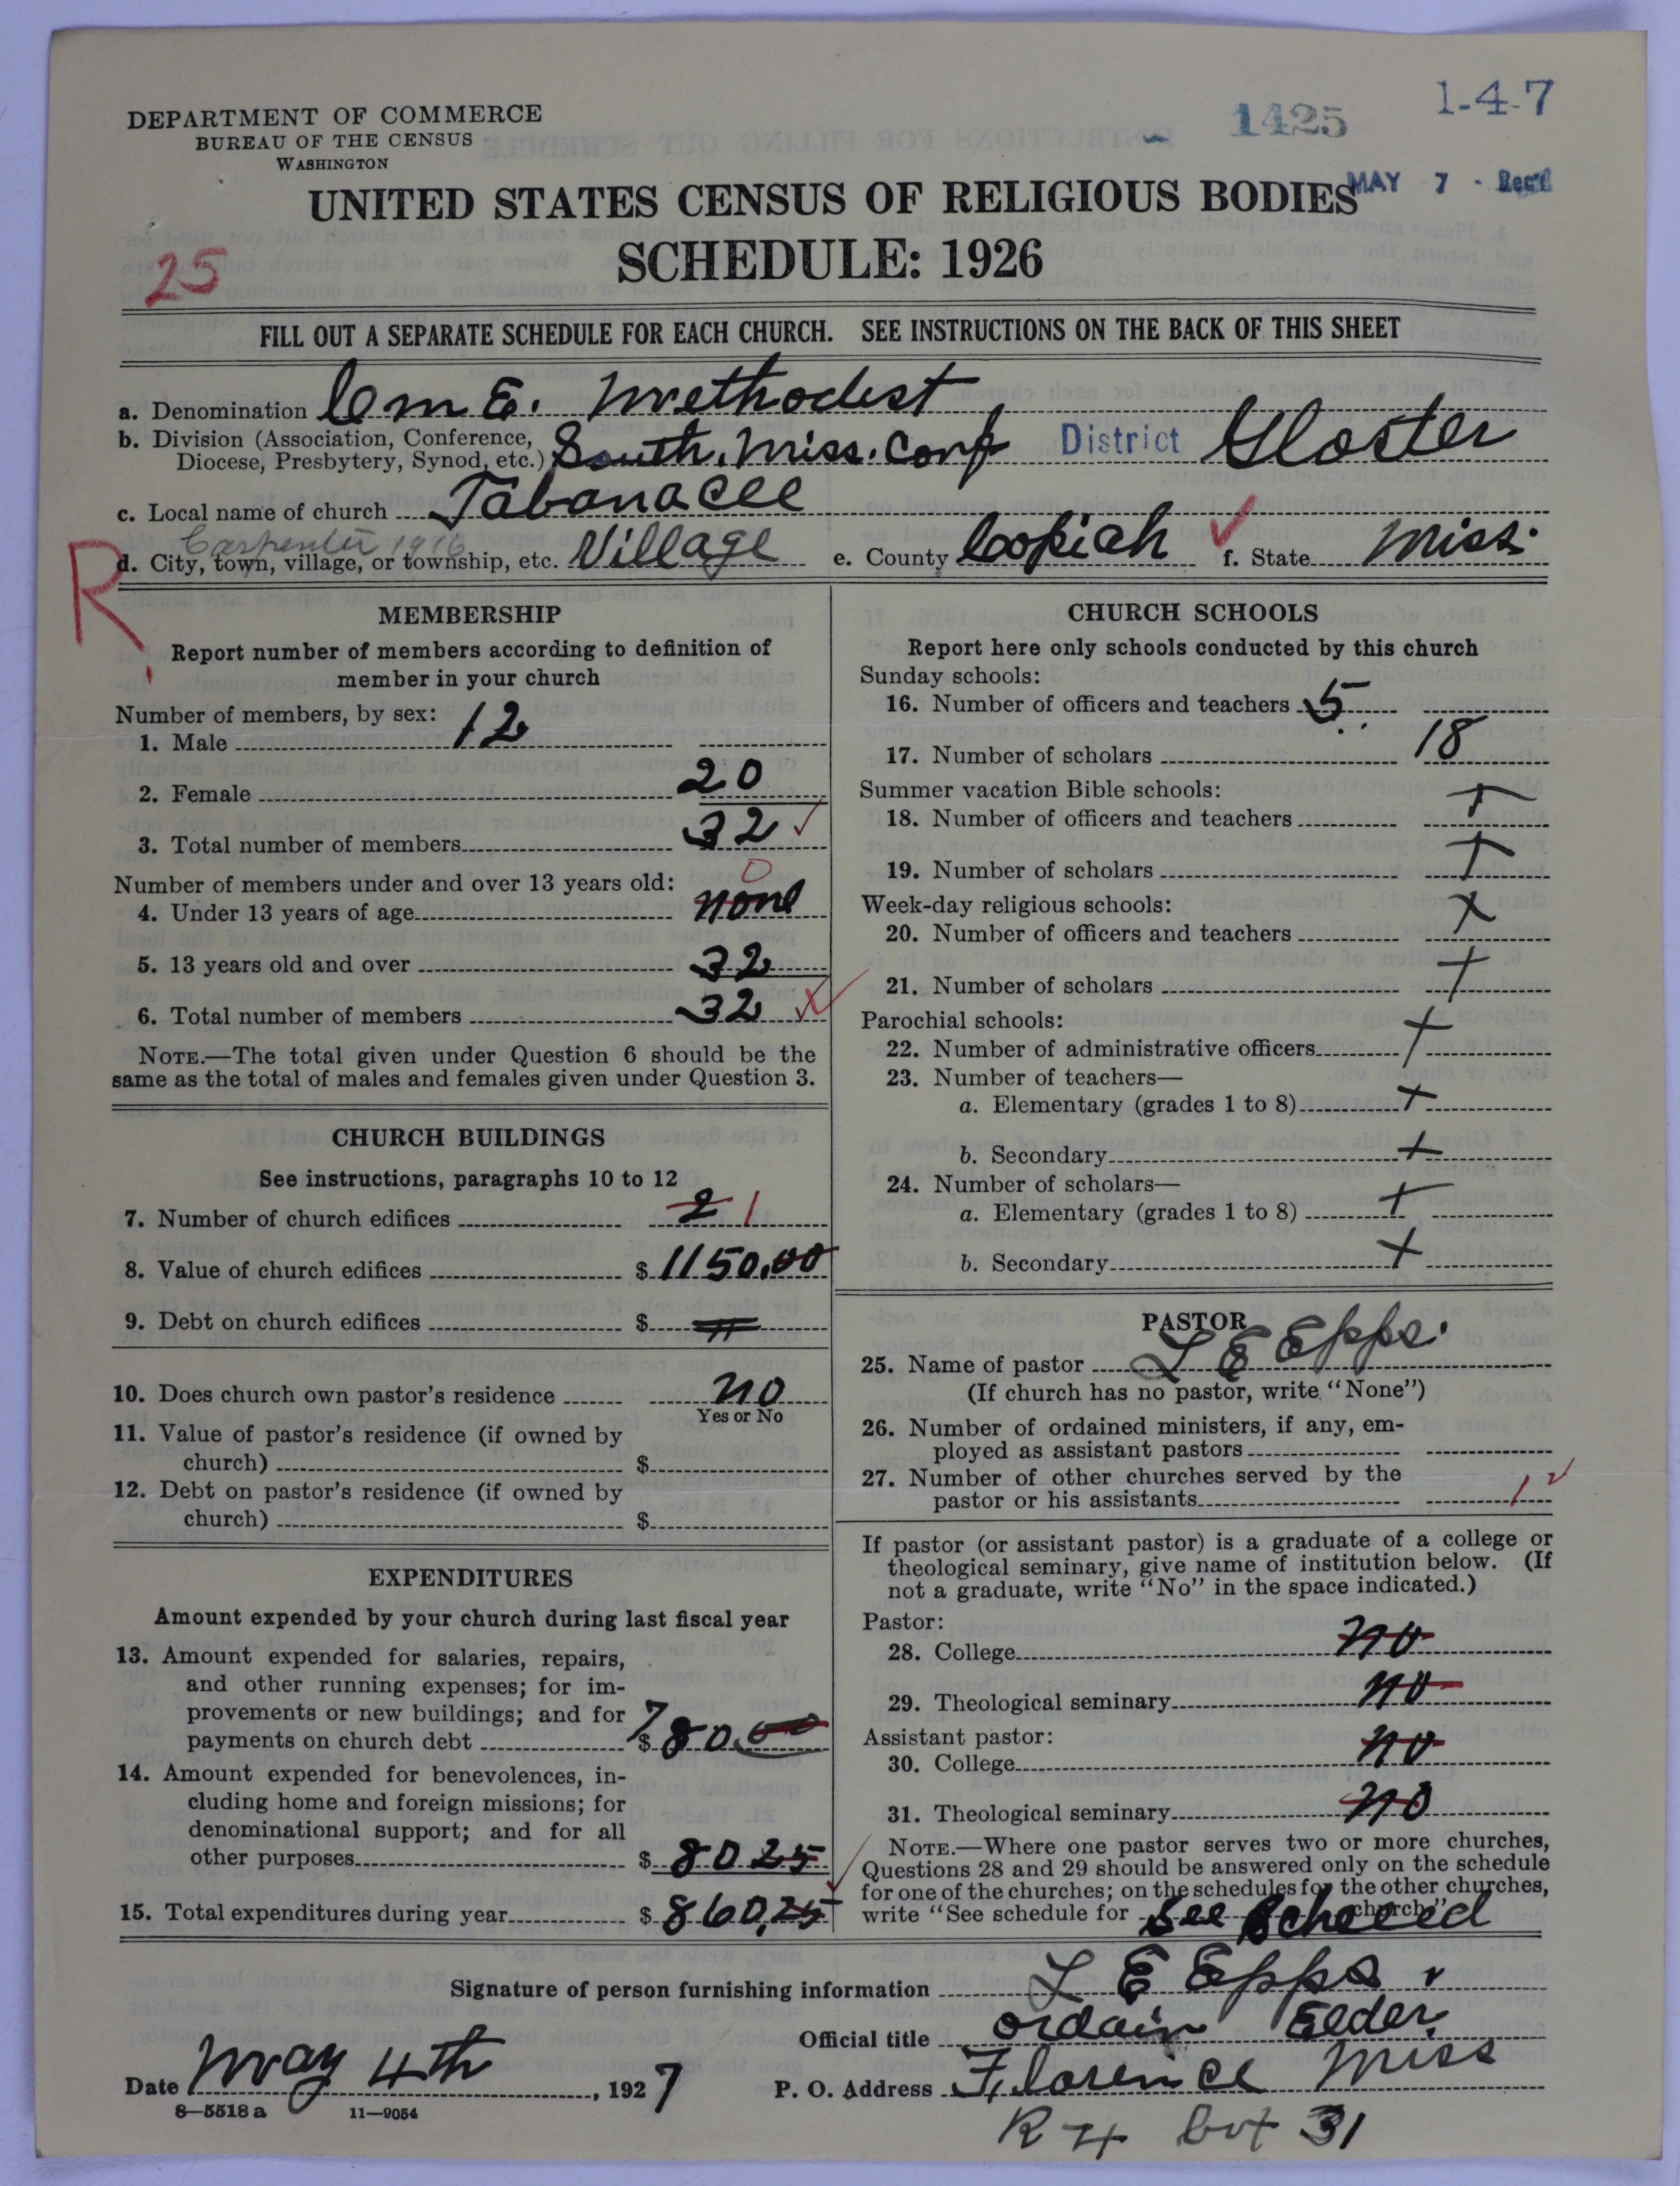 DEPARTMENT OF COMMERCE
BUREAU OF THE CENSUS
WASHINGTON
1425
1-4-7
MAY 7 - Rec'd
UNITED STATES CENSUS OF RELIGIOUS BODIES
SCHEDULE: 1926
25
FILL OUT A SEPARATE SCHEDULE FOR EACH CHURCH. SEE INSTRUCTIONS ON THE BACK OF THIS SHEET
a. Denomination C M E. Methodest
b. Division (Association, Conference, Diocese, Presbytery, Synod, etc.) South. Miss. Conf District Gloster
c. Local name of church Tabanacle
Carpenter 1916
d. City, town, village, or township, etc. Village e. County Copiah f. State Miss.
R
MEMBERSHIP
Report number of members according to definition of
member in your church
Number of members, by sex:
1. Male 12
2. Female 20
3. Total number of members 32
Number of members under and over 13 years old:
0
4. Under 13 years of age none
5. 13 years old and over 32
6. Total number of members 32
NOTE.—The total given under Question 6 should be the
same as the total of males and females given under Question 3.
CHURCH BUILDINGS
See instructions, paragraphs 10 to 12
7. Number of church edifices 2 1
8. Value of church edifices $ 1150.00
9. Debt on church edifices $
10. Does church own pastor's residence no
Yes or No
11. Value of pastor's residence (if owned by
church) $
12. Debt on pastor's residence (if owned by
church) $
EXPENDITURES
Amount expended by your church during last fiscal year
13. Amount expended for salaries, repairs,
and other running expenses; for im-
provements or new buildings; and for
payments on church debt $ 780.00
14. Amount expended for benevolences, in-
cluding home and foreign missions; for
denominational support; and for all
other purposes $ 80 25
15. Total expenditures during year $ 860,25
CHURCH SCHOOLS
Report here only schools conducted by this church
Sunday schools:
16. Number of officers and teachers 5
17. Number of scholars 18
Summer vacation Bible schools:
18. Number of officers and teachers +
19. Number of scholars +
Week-day religious schools:
20. Number of officers and teachers x
21. Number of scholars +
Parochial schools:
22. Number of administrative officers +
23. Number of teachers—
a. Elementary (grades 1 to 8) +
b. Secondary +
24. Number of scholars—
a. Elementary (grades 1 to 8) +
b. Secondary +
PASTOR
25. Name of pastor L E Epps.
(If church has no pastor, write "None")
26. Number of ordained ministers, if any, em-
ployed as assistant pastors
27. Number of other churches served by the
pastor or his assistants 1
If pastor (or assistant pastor) is a graduate of a college or
theological seminary, give name of institution below. (If
not a graduate, write "No" in the space indicated.)
Pastor:
28. College no
29. Theological seminary no
Assistant pastor:
30. College no
31. Theological seminary no
NOTE.—Where one pastor serves two or more churches,
Questions 28 and 29 should be answered only on the schedule
for one of the churches; on the schedules for the other churches,
write "See schedule for See church."
Signature of person furnishing information L E Epps
Official title Ordain Elder
Date May 4th, 1927 P. O. Address Florence Miss
8—5518 a 11—9054
R 4 box 31